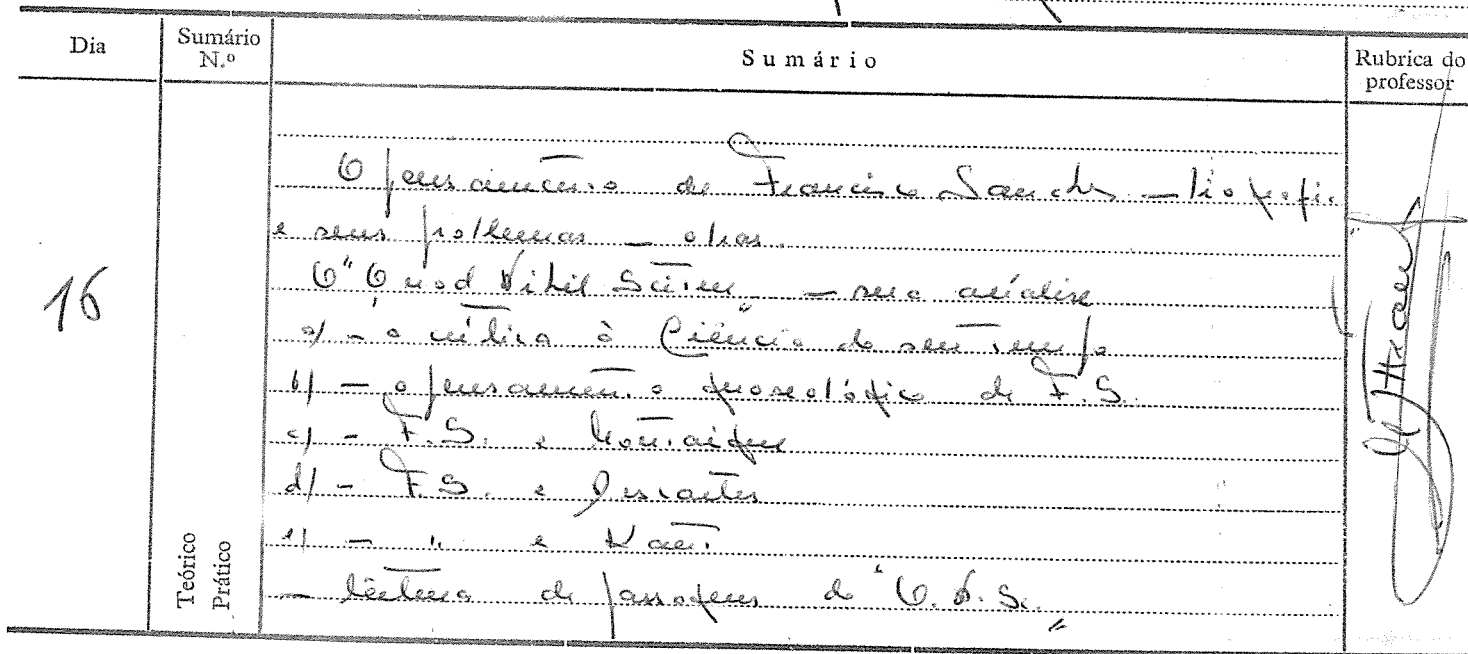 Dia
Sumário N.º
Sumário
Rubrica do professor
16
Teórico
Prático
O pensamento de Francisco Sanches – biografia
e seus problemas – obras.
O "Quod Nihil Scitur" – sua análise
a) – a crítica à Ciência do seu tempo
b) – o pensamento gnoseológico de F.S.
c) – F.S. e Montaigne
d) – F.S. e Descartes
e) – " e Kant
– leitura de passagens do "Q.N.S."